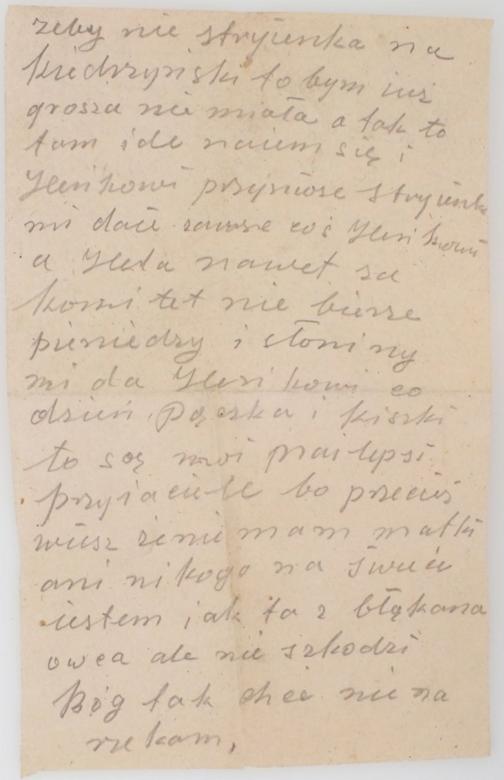 żeby nie stryienka na
kiedrzyński to bym iuż
grosza nie miała a tak to
tam ide naiem się i
Henikowi przyniose stryienka
mi daie zawsze coś Henikowi
a Hela nawet za
komitet nie bierze
pieniedzy i słoniny
mi da Henikowi co
dzień pączka i kiszki
to są moi prailepsi
przyiaciele bo przecież
wiesz żenie mam matki
ani nikogo na świeie
iestem iak ta z błąkana
owca ale nie szkodzi
Bóg tak chce niena
rzekam,